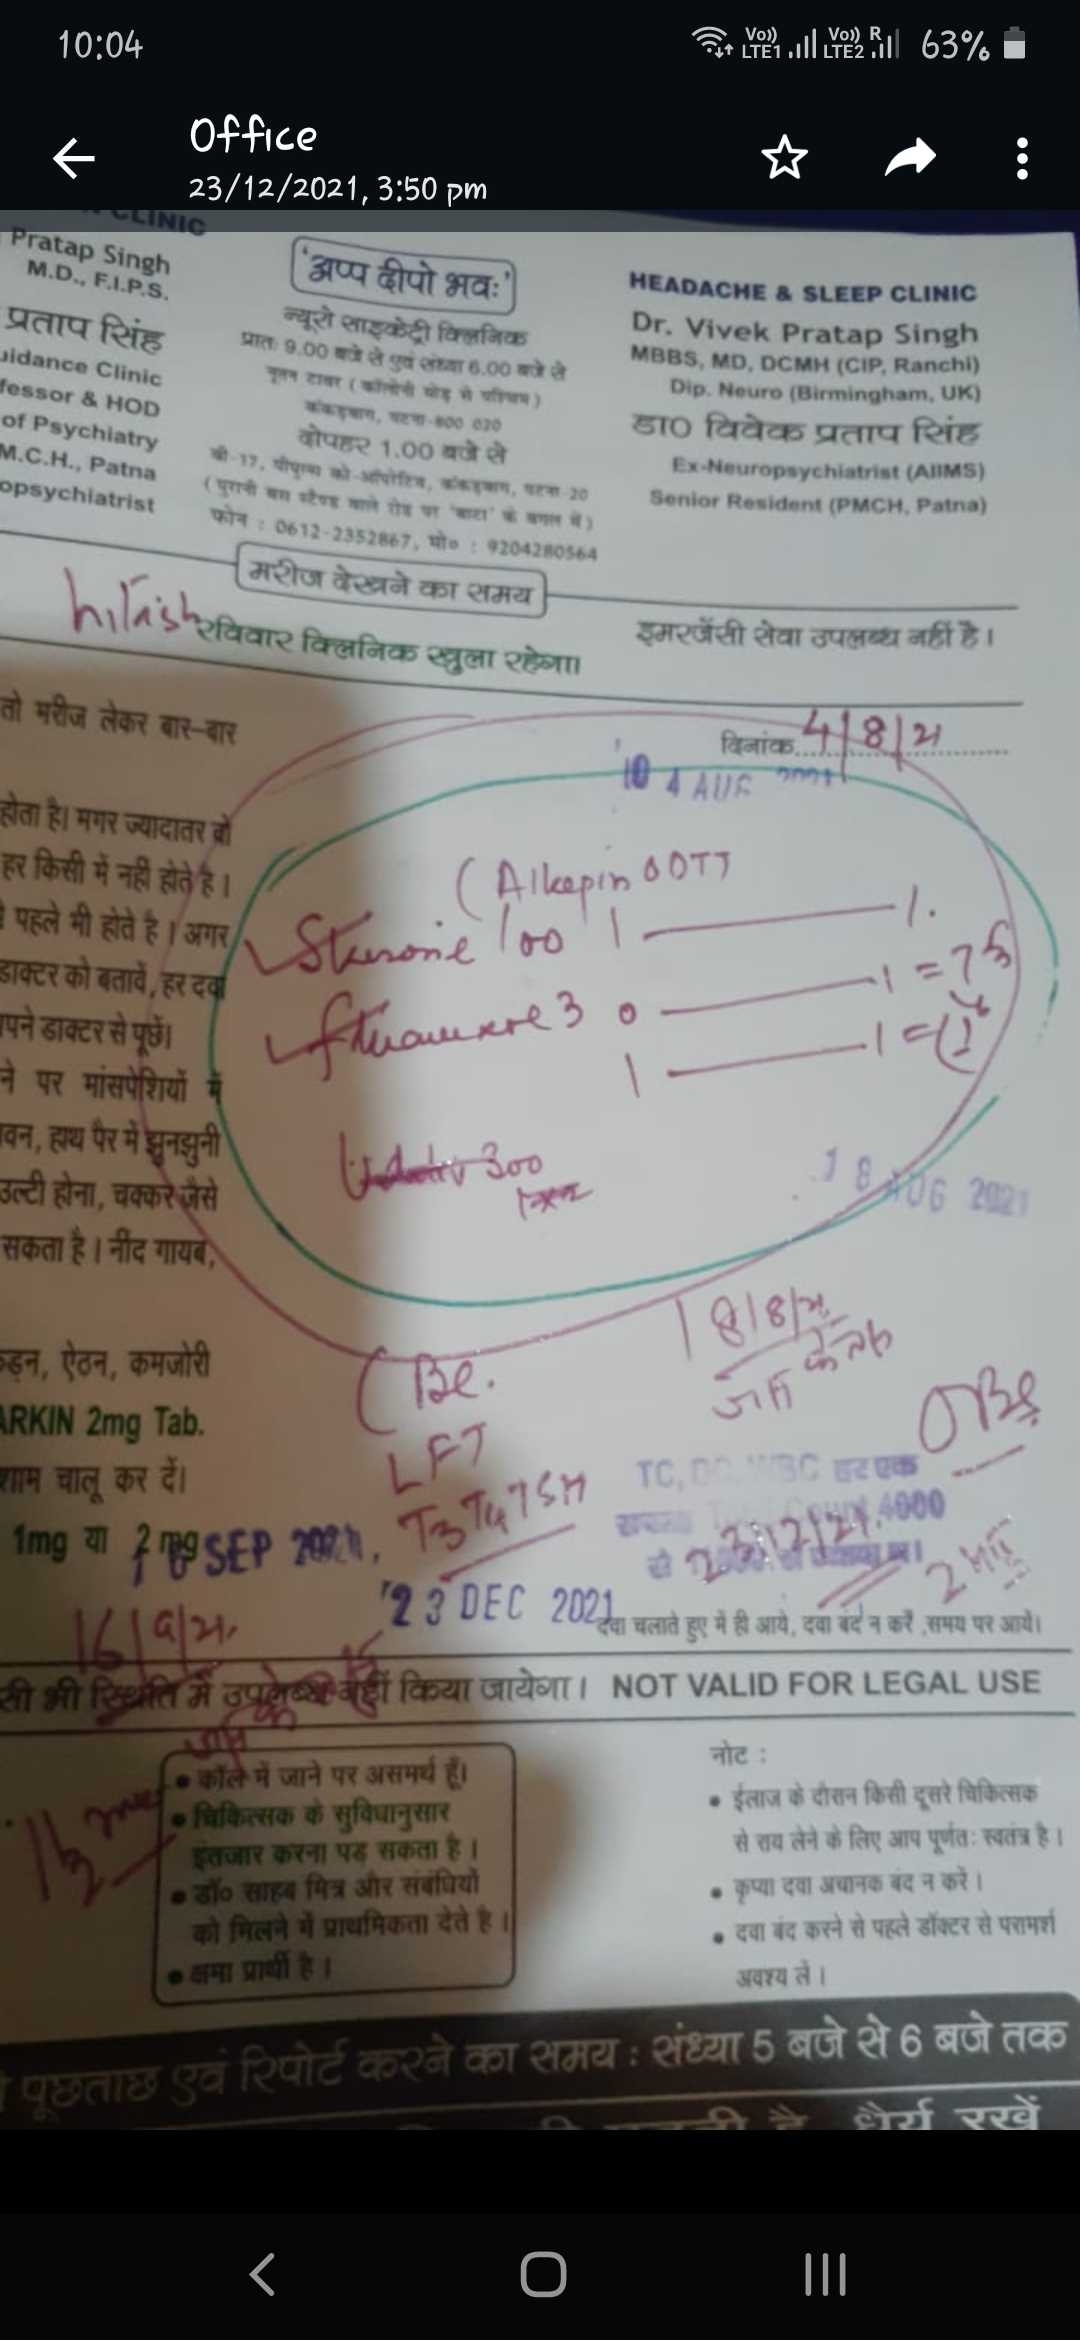 10:04
Vo)) LTE1 Vo)) LTE2 R 63%
Office
23/12/2021, 3:50 pm
CLINIC
Pratap Singh
M.D., F.I.P.S.
प्रताप सिंह
uidance Clinic
fessor & HOD
of Psychiatry
M.C.H., Patna
opsychiatrist
'अप्प दीपो भवः'
न्यूरो साइकेट्री क्लिनिक
प्रातः 9.00 बजे से एवं संध्या 6.00 बजे से
नूतन टावर ( कॉलोनी मोड़ से पश्चिम )
कंकड़बाग, पटना-800 020
दोपहर 1.00 बजे से
बी-17, पीपुल्स को-ऑपरेटिव, कंकड़बाग, पटना-20
( पुरानी बस स्टैण्ड वाले रोड पर 'बाटा' के बगल में )
फोन : 0612-2352867, मो० : 9204280564
HEADACHE & SLEEP CLINIC
Dr. Vivek Pratap Singh
MBBS, MD, DCMH (CIP, Ranchi)
Dip. Neuro (Birmingham, UK)
डा० विवेक प्रताप सिंह
Ex-Neuropsychiatrist (AIIMS)
Senior Resident (PMCH, Patna)
मरीज देखने का समय
रविवार क्लिनिक खुला रहेगा।
इमरजेंसी सेवा उपलब्ध नहीं है।
तो मरीज लेकर बार-बार
दिनांक 4/8/21
4 AUG 2021
होता है। मगर ज्यादातर वो
हर किसी में नही होते है।
पहले भी होते है। अगर
डाक्टर को बतावें, हर दवा
पने डाक्टर से पूछें।
ने पर मांसपेशियों में
वन, हाथ पैर में झुनझुनी
उल्टी होना, चक्कर जैसे
सकता है। नींद गायब,
कड़न, ऐंठन, कमजोरी
ARKIN 2mg Tab.
शाम चालू कर दें।
1mg या 2 mg
(Alkepin ODT)
100 1 — 1
3 0 — 1 = 7
1 — 1
300
18 AUG 2021
18/8/21
LFT
T3 T4 TSH
TC, DC, WBC हर एक
4000
23/12/21
16 SEP 2021
23 DEC 2021
16/9/21
दवा चलाते हुए में ही आये, दवा बंद न करें ,समय पर आये।
सी भी स्थिति में उपलब्ध नहीं किया जायेगा। NOT VALID FOR LEGAL USE
• कॉल में जाने पर असमर्थ हूँ।
• चिकित्सक के सुविधानुसार
इंतजार करना पड़ सकता है।
• डॉ० साहब मित्र और संबंधियों
को मिलने में प्राथमिकता देते है।
• क्षमा प्रार्थी है।
नोट :
• ईलाज के दौरान किसी दूसरे चिकित्सक
से राय लेने के लिए आप पूर्णतः स्वतंत्र है।
• कृप्या दवा अचानक बंद न करें।
• दवा बंद करने से पहले डॉक्टर से परामर्श
अवश्य लें।
पूछताछ एवं रिपोर्ट करने का समय : संध्या 5 बजे से 6 बजे तक
धैर्य रखें